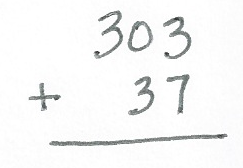 303
+ 37